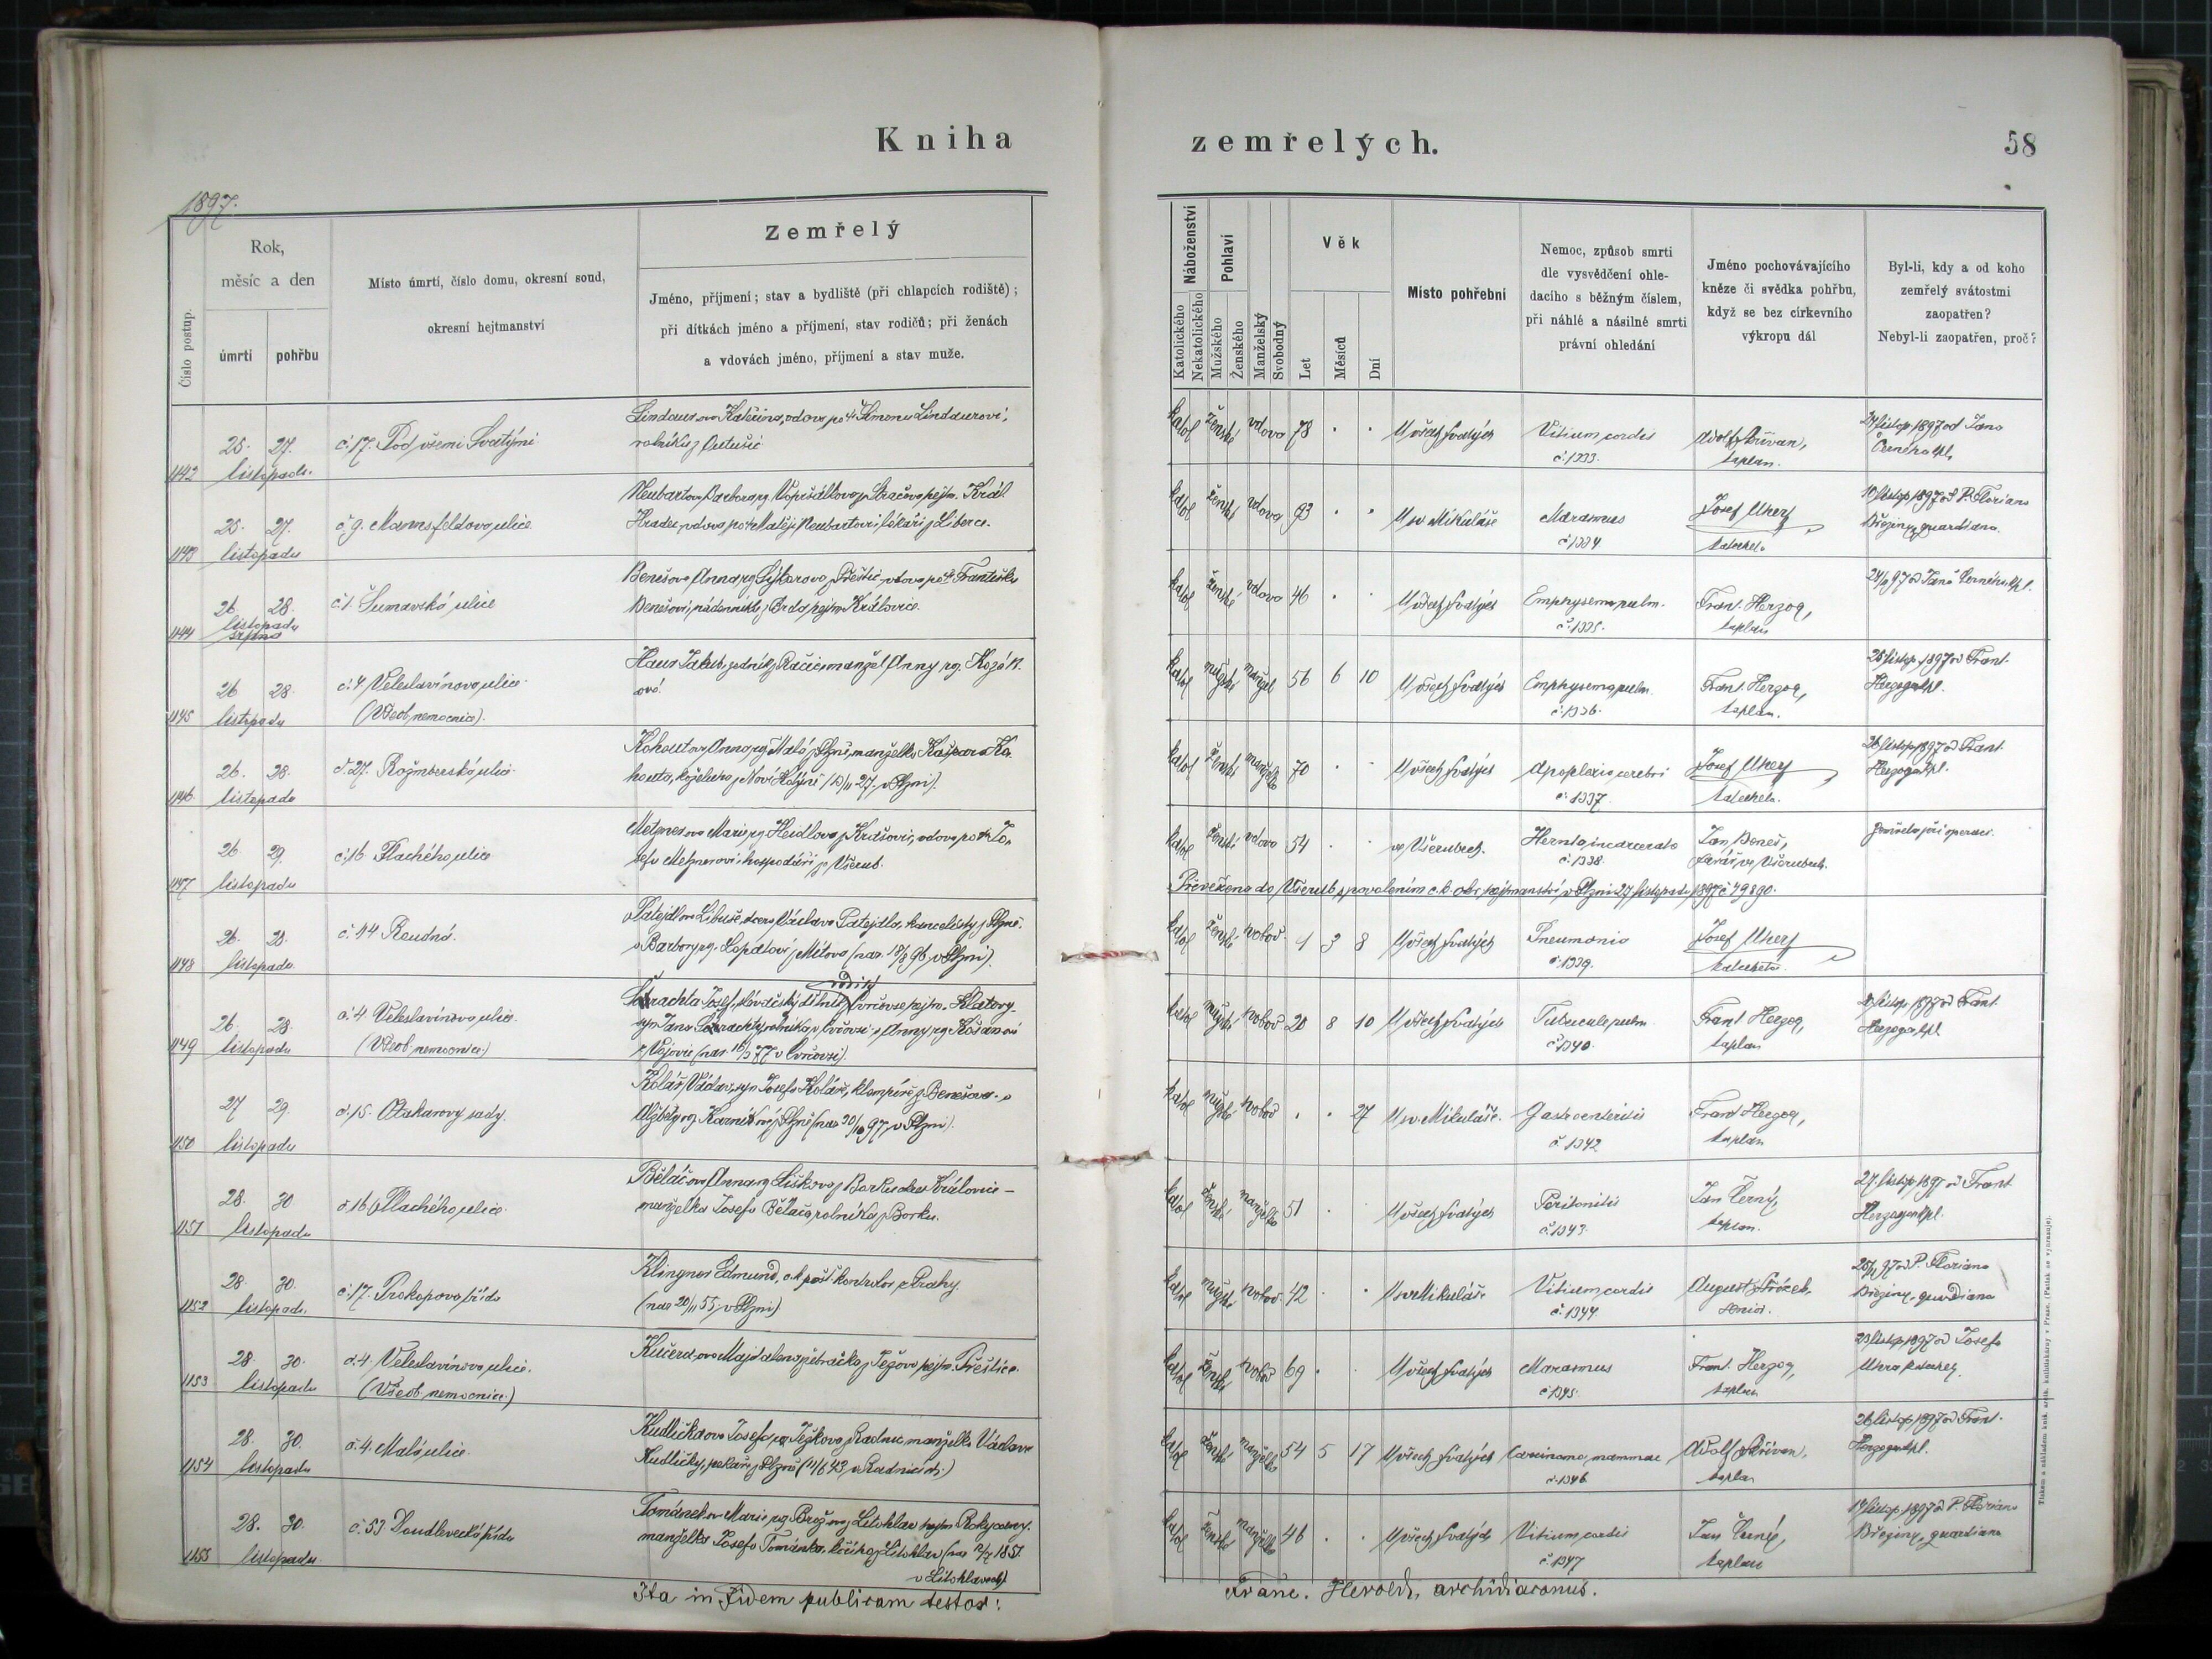 Kniha zemřelých.
58
1897.
Číslo postup.
Rok,
měsíc a den
úmrtí
pohřbu
Místo úmrtí, číslo domu, okresní soud,
okresní hejtmanství
Zemřelý
Jméno, příjmení; stav a bydliště (při chlapcích rodiště);
při dítkách jméno a příjmení, stav rodičů; při ženách
a vdovách jméno, příjmení a stav muže.
Náboženství
Katolického
Nekatolického
Pohlaví
Mužského
Ženského
Manželský
Svobodný
Věk
Let
Měsíců
Dní
Místo pohřební
Nemoc, způsob smrti
dle vysvědčení ohle-
dacího s běžným číslem,
při náhlé a násilné smrti
právní ohledání
Jméno pochovávajícího
kněze či svědka pohřbu,
když se bez církevního
výkropu dál
Byl-li, kdy a od koho
zemřelý svátostmi
zaopatřen?
Nebyl-li zaopatřen, proč?
1142 25. 27. listopadu
č. 17. Pode všemi Svatými
Kateřina, vdova po Šimonu Lindaurovi,
rolníku z
katol ženské vdova 78 U všech svatých
Vitium cordis
č. 1333.
Adolf Skřivan,
kaplan.
24 listop. 1897 od Jana
Černého kpl.
1143 25. 27. listopadu
č. 9. Mannsfeldova ulice
Hradec, vdova po Matěji Neubartovi, lékaři z Liberce.
katol ženské vdova 93 U sv. Mikuláše
Marasmus
č. 1334
Josef Uherý
katecheta
listop. 1897 od P. Floriana
Březiny, guardiana.
1144 26 28. listopadu
srpna
č. 1. Šumavská ulice
Benešova Anna roz. Sýkorova z Přeštic, vdova po Františku
Benešovi, nádenníku z hejtm. Kralovice.
katol ženské vdova 46 U všech svatých
Emphysema pulm.
č. 1335.
Frant. Herzog,
kaplan
24/11 97 od Jana Černého kpl.
1145 26 28. listopadu
č. 4 Veleslavínova ulice
(Všeob. nemocnice).
Haus Jakub, z Račic, manžel Anny roz.
katol mužské manžel 56 6 10 U všech svatých
Emphysema pulm.
č. 1336.
Frant. Herzog,
kaplan.
25 listop. 1897 od Frant.
Herzoga kpl.
1146 26. 28. listopadu
č. 27. Rožmberská ulice
Kohoutova Anna roz. Malá z Plzně, manželka Kašpara Ko-
houta, koželuha z
katol ženské manželka 70 U všech svatých
Apoplexia cerebri
č. 1337.
Josef Uherý
katecheta.
26 listop. 1897 od Frant.
Herzoga kpl.
1147 26. 29. listopadu
č. 16 Plachého ulice
Metznerova Marie roz. Heidlova z vdova po Jo-
sefu Metznerovi, hospodáři z Všerub.
katol ženské vdova 54 ve Všerubech.
Hernia incarcerata
č. 1338.
Jan Beneš,
farář ve Všerubech.
Zemřela při operaci.
Převežena do Všerub s povolením c.k. okr. hejtmanství v Plzni 27 listopadu 1897 č. 49890.
1148 26. 28. listopadu
č. 44 Roudná.
Patejdlova Libuše, dcera Václava Patejdla, kancelisty z Plzně
a Barbory roz. Lopatovi z Mítova (nar. 18/8 96 v Plzni).
katol ženské svobod 1 3 8 U všech svatých
Pneumonia
č. 1339.
Josef Uherý
katecheta
1149 26 28 listopadu
č. 4 Veleslavínova ulice.
(Všeob. nemocnice)
rodilý
Josef, kovářský dělník, hejtm. Klatovy
syn Jana rolníka a Anny roz.
katol mužské svobod 20 8 10 U všech svatých
Tubercul. pulm.
č. 1340.
Frant. Herzog,
kaplan
listop. 1897 od Frant.
Herzoga kpl.
1150 27 29. listopadu
č. 15. Otakarovy sady.
Kolář Václav, syn Josefa Koláře, klempíře z Benešova a
Alžběty roz. z Plzně (nar. 30/10 97 v Plzni).
katol mužské svobod 27 U sv. Mikuláše.
Gastroenteritis
č. 1342
Frant. Herzog,
kaplan
1151 28. 30 listopadu
č. 16 Plachého ulice.
Běláčova Anna roz. Liškova z Borku okr. Kralovice –
manželka Josefa Běláče, rolníka z Borku.
katol ženské manželka 51 U všech svatých
Peritonitis
č. 1343.
Jan Černý,
kaplan.
27 listop. 1897 od Frant.
Herzoga kpl.
1152 28. 30. listopadu
č. 17. Prokopova třída
Klingner Edmund, c.k. pošt. kontrolor z Prahy.
(nar. 20/11 55 v Plzni)
katol mužské svobod. 42 U sv. Mikuláše
Vitium cordis
č. 1344
August
senior.
25/11 97 od P. Floriana
Březiny, guardiana
1153 28. 30. listopadu
č. 4. Veleslavínova ulice.
(Všeob. nemocnice)
Kučerova Majdalena, hejtm. Přeštice.
katol ženské svobod 69 U všech svatých
Marasmus
č. 1345.
Frant. Herzog,
kaplan
listop. 1897 od Josefa
Uhra katechety
1154 28. 30. listopadu
č. 4. Malá ulice.
Kudličkova Josefa roz. Ježkova z Radnic manželka Václava
Kudličky, pekaře z Plzně (11/6 43 v Radnicích.)
katol ženské manželka 54 5 17 U všech svatých
Carcinoma mammae
č. 1346
Adolf Skřivan,
kaplan
26 listop. 1897 od Frant.
Herzoga kpl.
1155 28. 30. listopadu
č. 53 Doudlevecká třída
Tománkova Marie roz. z Litohlav hejtm. Rokycany.
manželka Josefa Tománka, kočího z Litohlav 1851
v Litohlavech)
katol ženské manželka 46 U všech svatých
Vitium cordis
č. 1347
Jan Černý,
kaplan
listop. 1897 od P. Floriana
Březiny, guardiana
Ita in fidem publicam testor: Franc. Herold, archidiaconus.